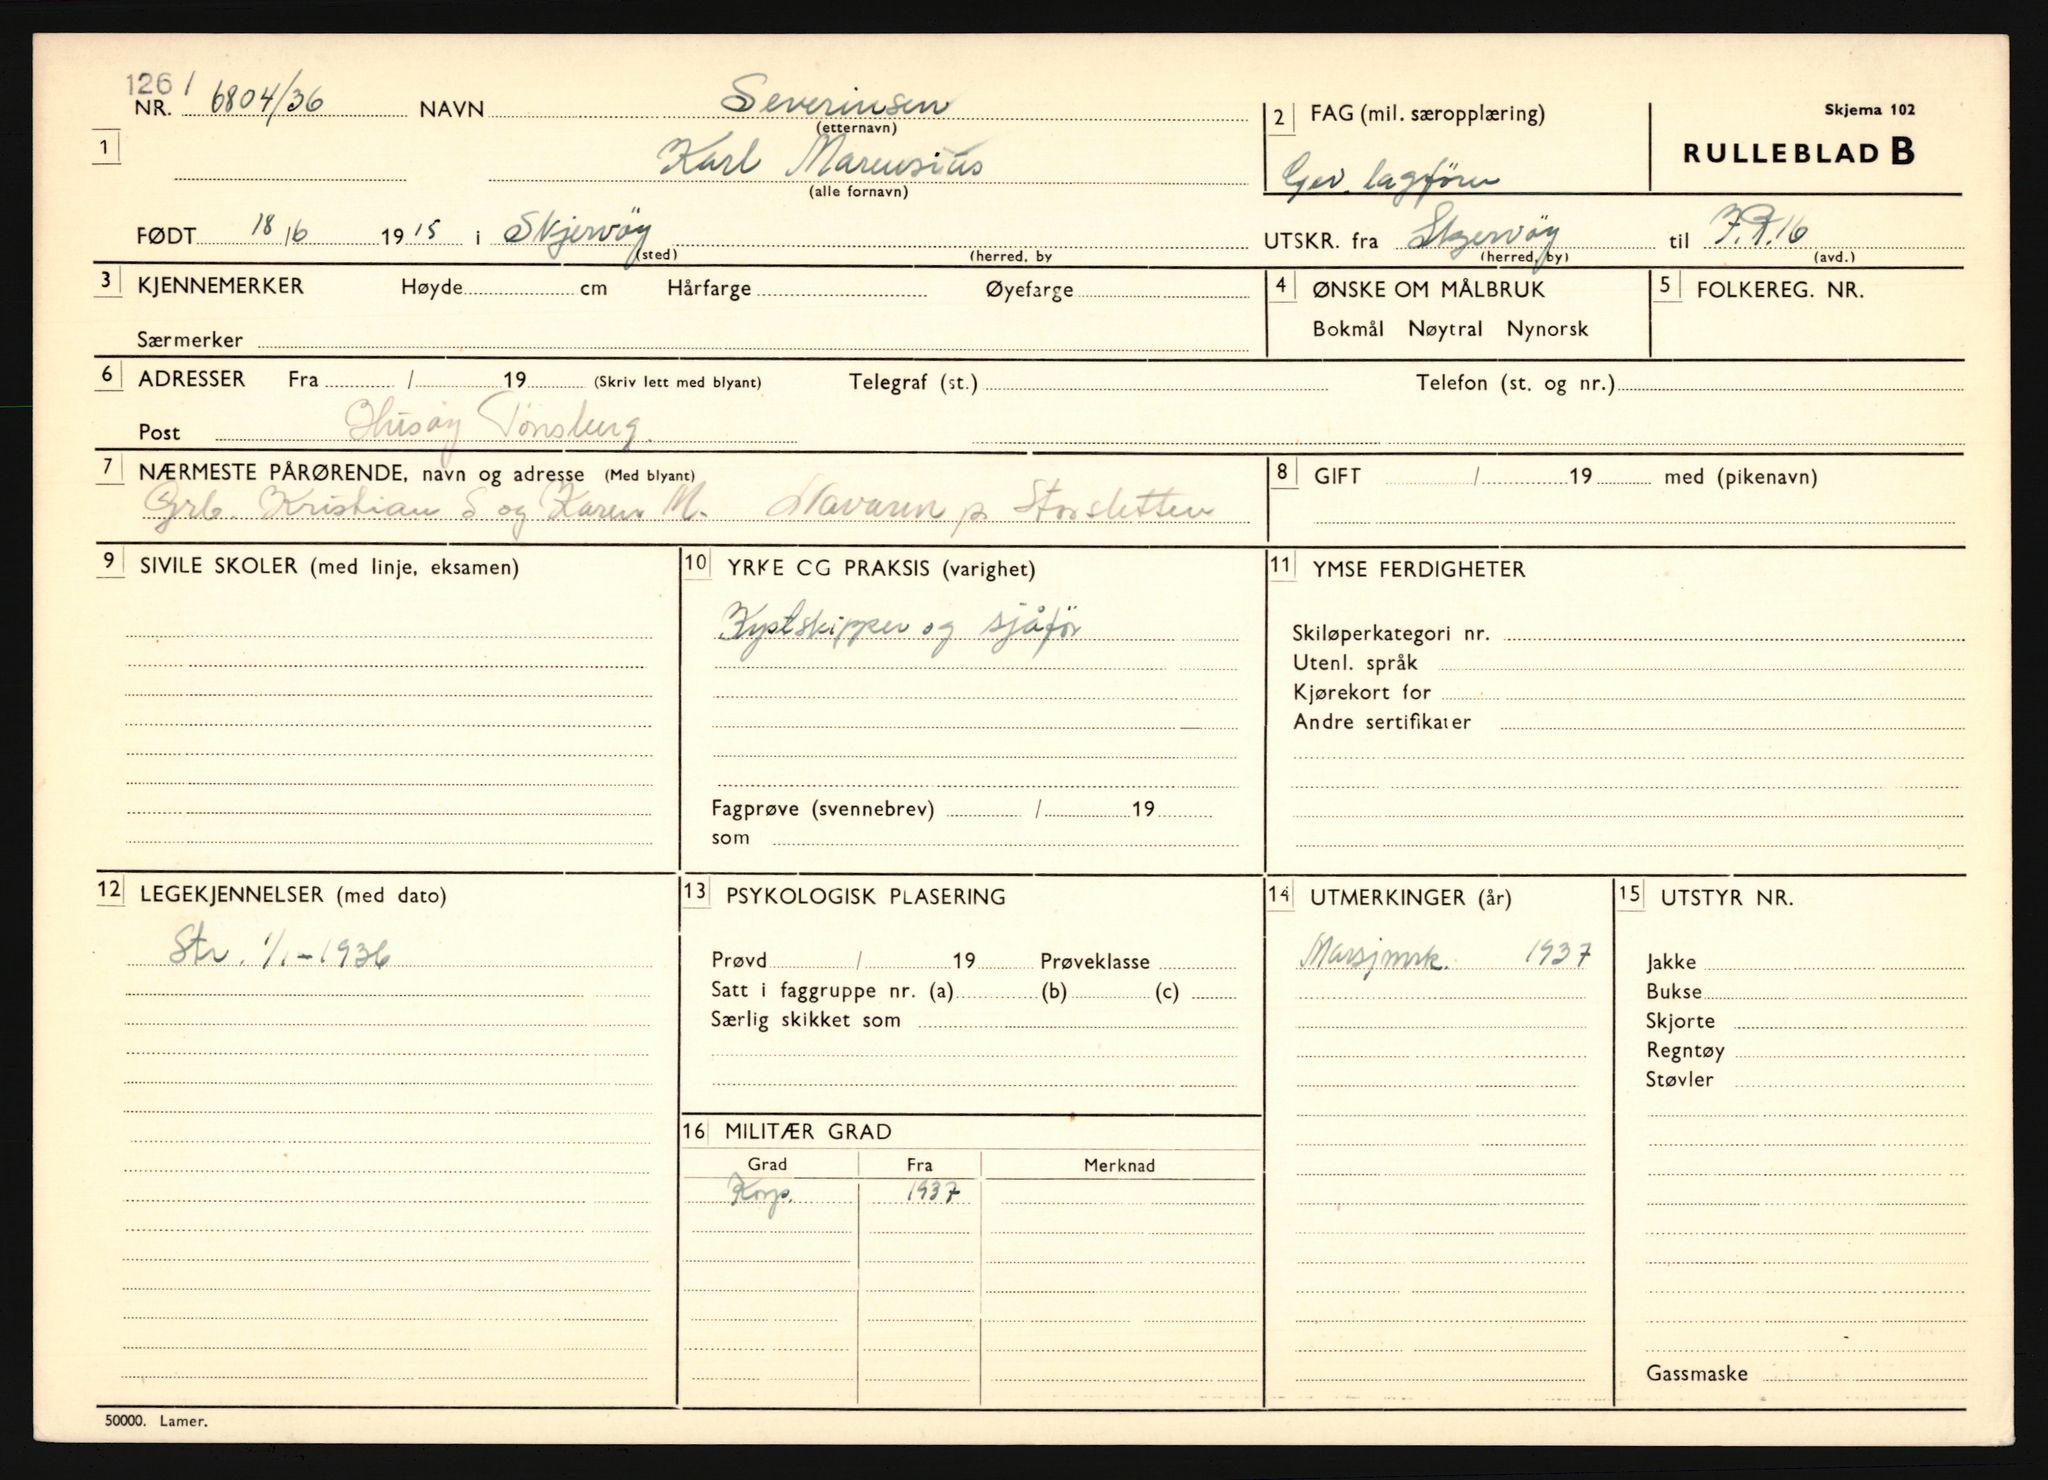 126 /
NR. 6804/36 NAVN Severinsen
(etternavn)
1 Karl Marensius
(alle fornavn)
2 FAG (mil. særopplæring)
Gev. lagförer
Skjema 102
RULLEBLAD B
FØDT 18/6 1915 i Skjervöy
(sted) (herred, by
UTSKR. fra Skjervöy til I.R.16
(herred, by) (avd.)
3 KJENNEMERKER Høyde cm Hårfarge Øyefarge
Særmerker
4 ØNSKE OM MÅLBRUK
Bokmål Nøytral Nynorsk
5 FOLKEREG. NR.
6 ADRESSER Fra / 19 (Skriv lett med blyant) Telegraf (st.) Telefon (st. og nr.)
Post Husøy Tønsberg.
7 NÆRMESTE PÅRØRENDE, navn og adresse (Med blyant)
Grb. Kristian S og Karen M. Navaren p. Storsletten
8 GIFT / 19 med (pikenavn)
9 SIVILE SKOLER (med linje, eksamen)
10 YRKE CG PRAKSIS (varighet)
Kystskipper og sjåför
Fagprøve (svennebrev) / 19
som
11 YMSE FERDIGHETER
Skiløperkategori nr.
Utenl. språk
Kjørekort for
Andre sertifikater
12 LEGEKJENNELSER (med dato)
Str. 1/1-1936
13 PSYKOLOGISK PLASERING
Prøvd / 19 Prøveklasse
Satt i faggruppe nr. (a) (b) (c)
Særlig skikket som
14 UTMERKINGER (år)
Marsjmrk. 1937
15 UTSTYR NR.
Jakke
Bukse
Skjorte
Regntøy
Støvler
Gassmaske
16 MILITÆR GRAD
Grad Fra Merknad
Korp. 1937
50000. Lamer.